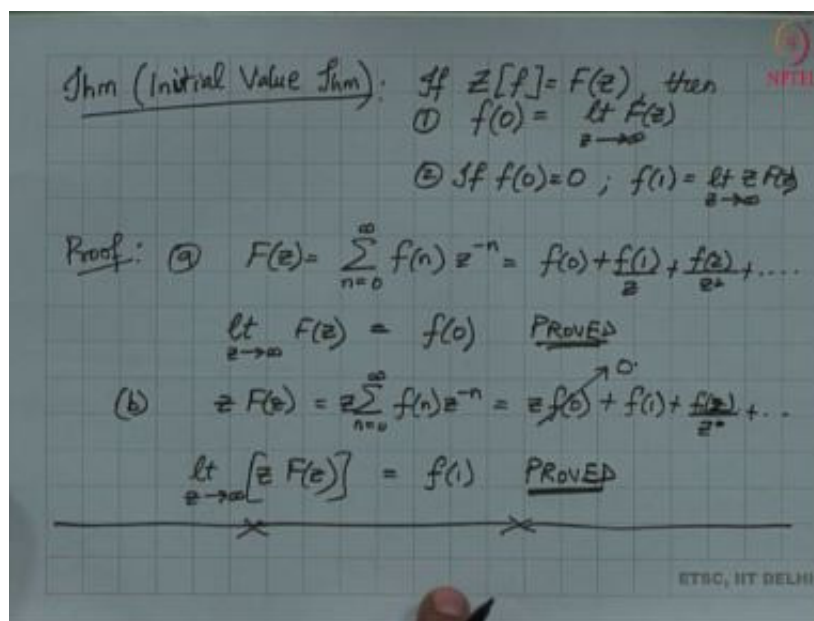 Thm (Initial Value Thm): If Z[f] = F(z), then
NPTEL
① f(0) = lt F(z)
z→∞
② If f(0)=0 ; f(1) = lt z F(z)
z→∞
Proof: ⓐ F(z) = ∑ f(n) z⁻ⁿ = f(0) + f(1)/z + f(2)/z² + ....
∞
n=0
lt F(z) = f(0) PROVED
z→∞
(b) z F(z) = z∑ f(n) z⁻ⁿ = z f(0) + f(1) + f(2)/z + ..
∞
n=0
0.
lt [z F(z)] = f(1) PROVED
z→∞
ETSC, IIT DELHI